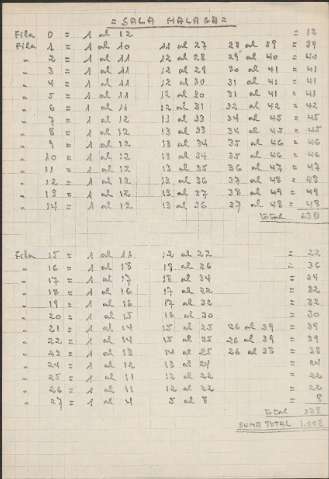 = SALA MALAGA =
Fila 0 = 1 al 12 = 12
Fila 1 = 1 al 10 11 al 27 28 al 39 = 39
" 2 = 1 al 11 12 al 28 29 al 40 = 40
" 3 = 1 al 11 12 al 29 30 al 41 = 41
" 4 = 1 al 11 12 al 30 31 al 42 = 42
" 5 = 1 al 11 12 al 30 31 al 41 = 41
" 6 = 1 al 11 12 al 31 32 al 42 = 42
" 7 = 1 al 12 13 al 33 34 al 45 = 45
" 8 = 1 al 12 13 al 33 34 al 45 = 45
" 9 = 1 al 12 13 al 34 35 al 46 = 46
" 10 = 1 al 12 13 al 34 35 al 46 = 46
" 11 = 1 al 12 13 al 35 36 al 47 = 47
" 12 = 1 al 12 13 al 36 37 al 48 = 48
" 13 = 1 al 12 13 al 37 38 al 49 = 49
" 14 = 1 al 12 13 al 36 37 al 48 = 48
Total
Fila 15 = 1 al 11 12 al 22 = 22
" 16 = 1 al 18 19 al 36 = 36
" 17 = 1 al 17 18 al 34 = 34
" 18 = 1 al 16 17 al 32 = 32
" 19 = 1 al 16 17 al 32 = 32
" 20 = 1 al 15 16 al 30 = 30
" 21 = 1 al 14 15 al 25 26 al 39 = 39
" 22 = 1 al 14 15 al 25 26 al 39 = 39
" 23 = 1 al 13 14 al 25 26 al 38 = 38
" 24 = 1 al 12 13 al 24 = 24
" 25 = 1 al 11 12 al 22 = 22
" 26 = 1 al 11 12 al 22 = 22
" 27 = 1 al 4 5 al 8 = 8
Total
SUMA TOTAL